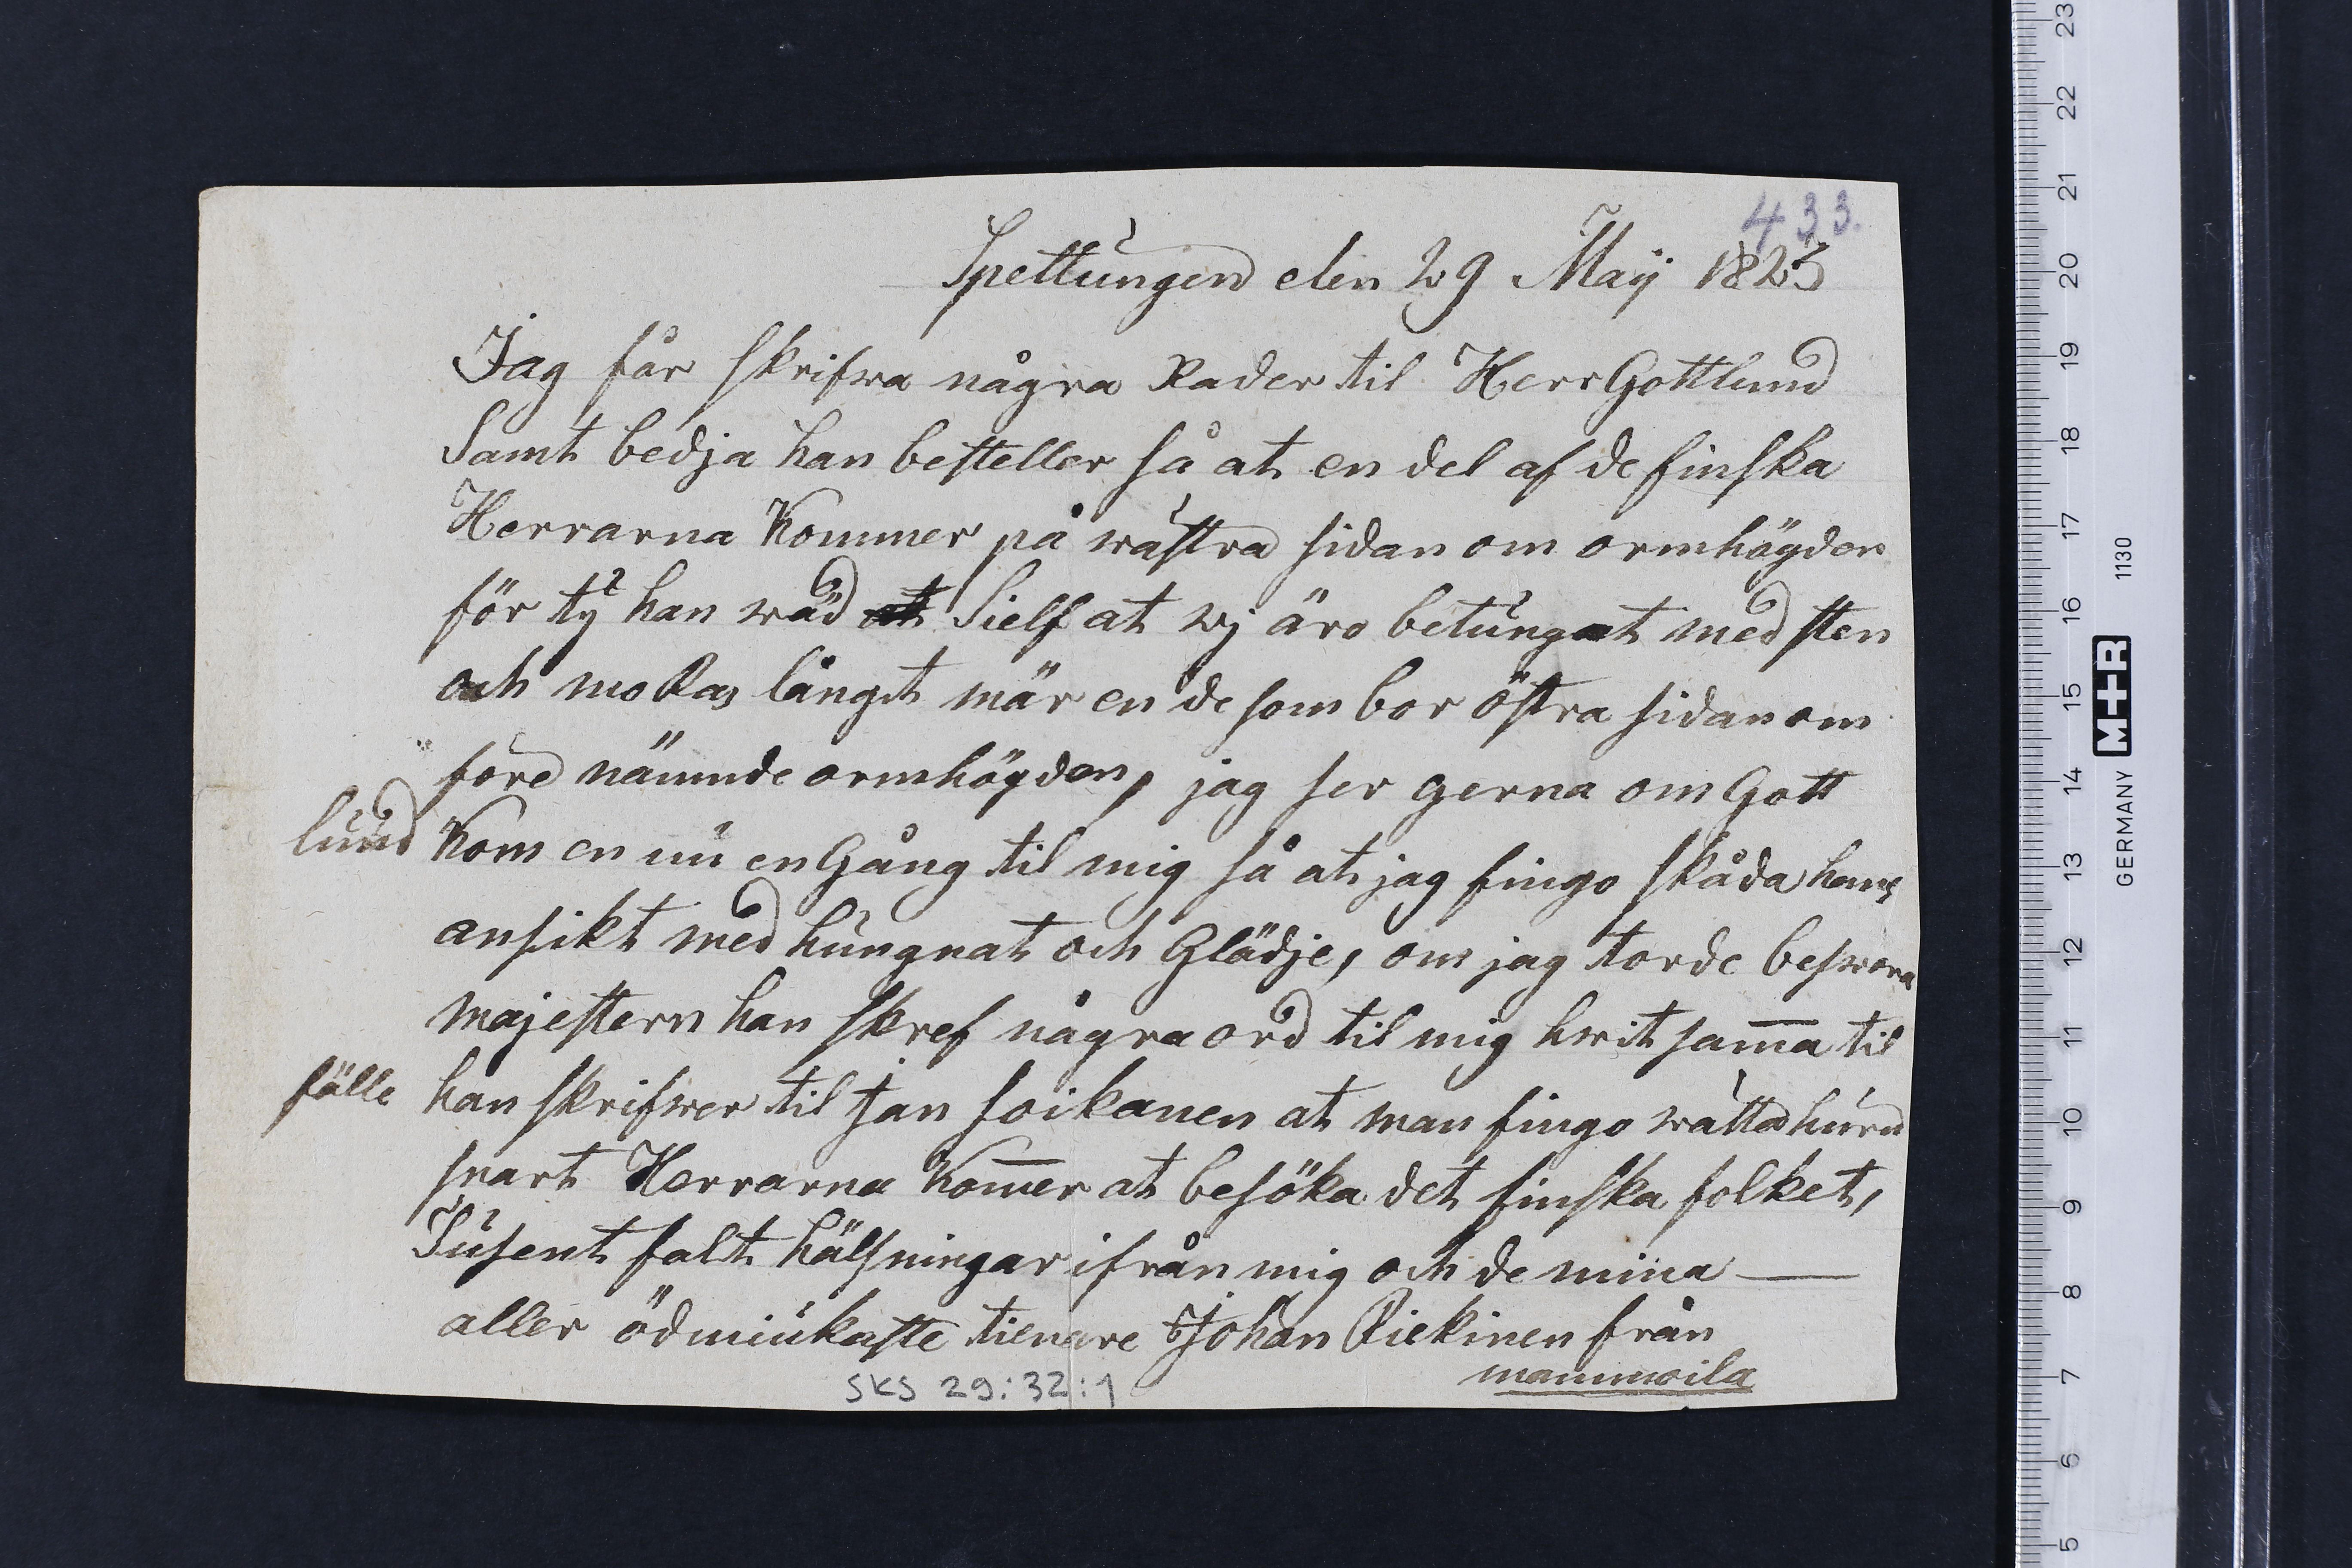 433.
Spettungen den 29 Maÿ 1823
Jag får skrifwa några Rader til Herr Gottlund
Samt bedja han besteller så at en del af de finska
Herrarna Kommer på wästra sidan om ormhögden
för ty han wäd Sielf at wj äro betungat med sten
och långt mär en de som bor östra sidan om
före nämnde ormhögden, jag ser gerna om Gott
lund Kom en nu en Gång til mig så at jag fingo skåda hans
ansikt med hungnat och Glädje, om jag torde beswera
majestern han skref några ord til mig hwit sam̅a til
fälle han skrifwer til Jan soikanen at man fingo wätta huru
snart Herrarna Kom̅er at besöka det finska folket,
Tusent falt hälsningar ifrån mig och de mina —
aller ödmiukaste tienare Johan Piekinen från
mammoila
SKS 29:32:1
23
22
21
20
19
18
17
16
15
14
13
12
11
10
9
8
7
6
5
GERMANY M+R 1130